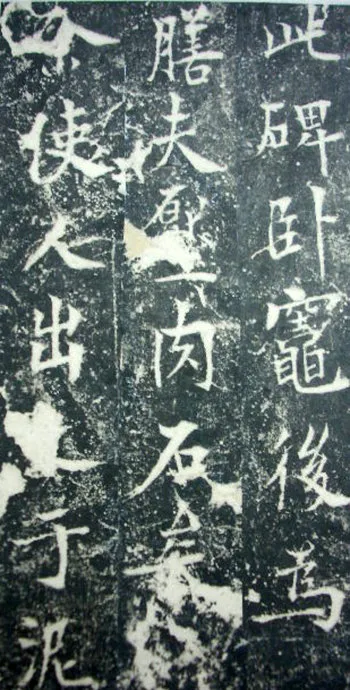 此碑卧竈後為
膳夫壓肉石矣
余使人出之于泥